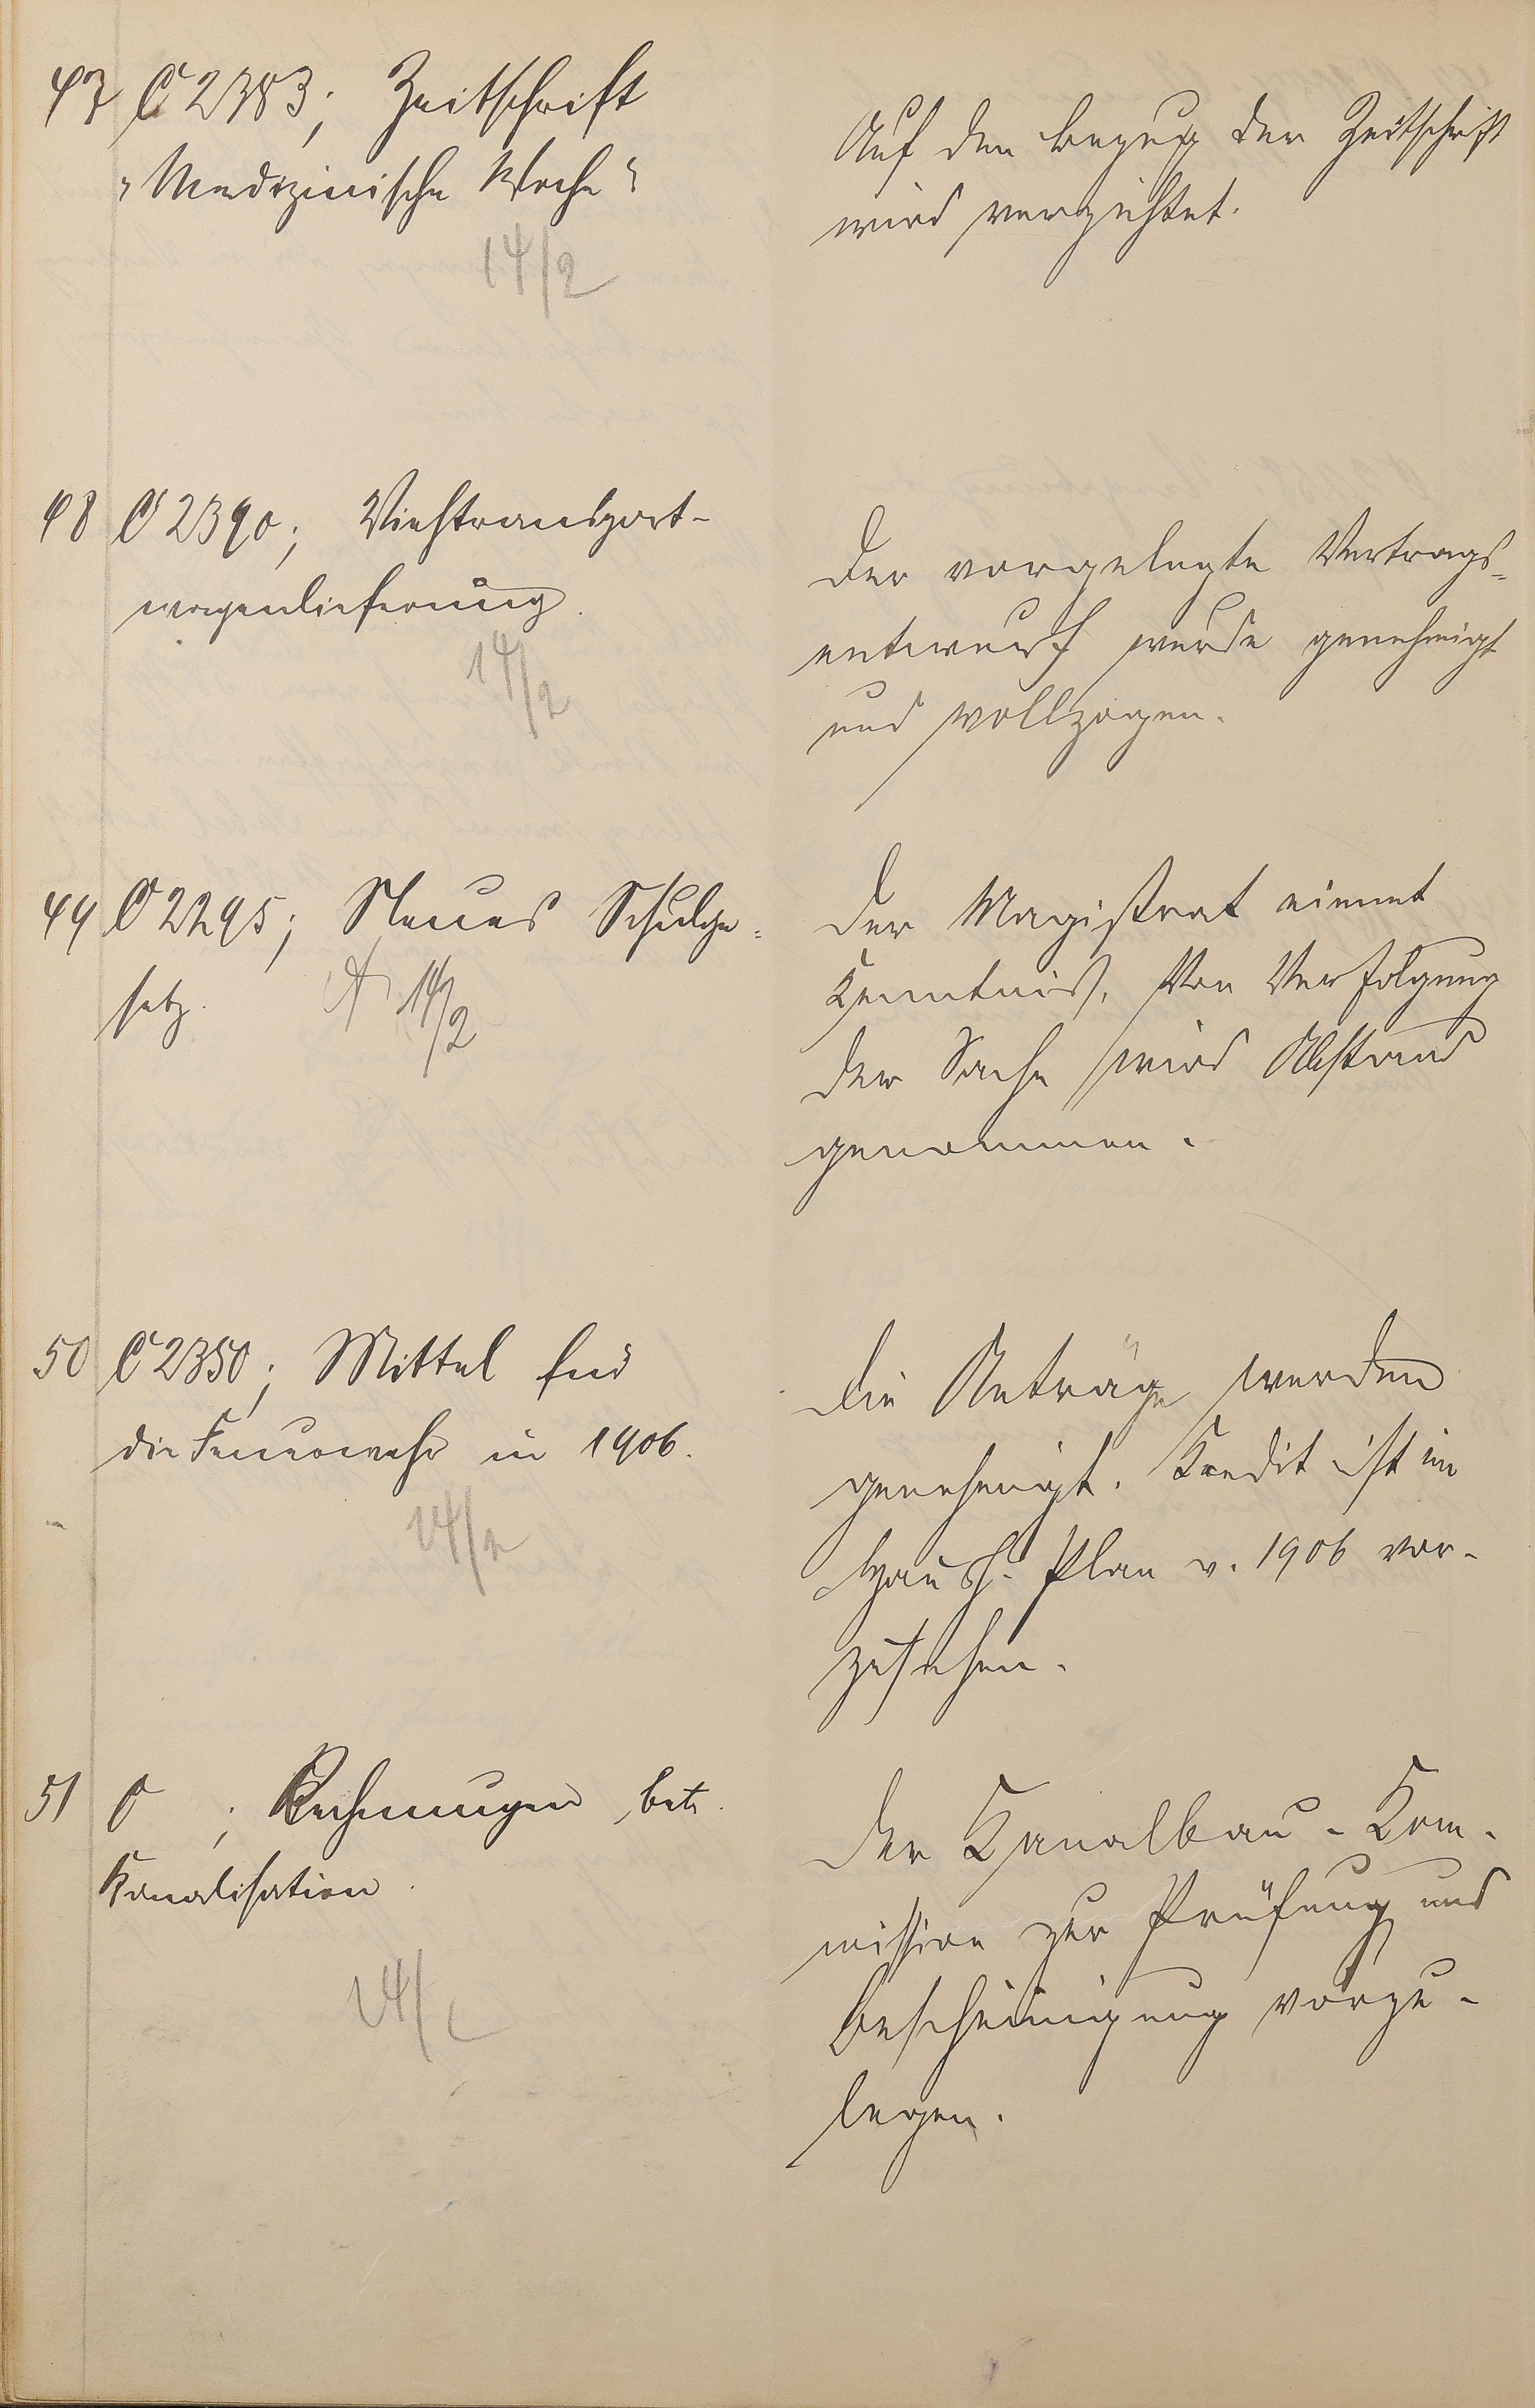 47 C 2383; Zeitschrift
„Medizinische Woche“
14/2
Auf den Bezug der Zeitschrift
wird verzichtet.
48 C 2390; Viehtransport-
wagenlieferung.
14/2
Der vorgelegte Vertrags=
entwurf wurde genehmigt
und vollzogen.
49 C 2295; Neues Schulge=
setz.
14/2
Der Magistrat nimmt
Kenntnis. Von Verfolgung
der Sache wird Abstand
genommen.
50 C 2350; Mittel für
die Feuerwehr in 1906.
14/2
Die Anträge werden
genehmigt. Kredit ist im
Haush. Plan v. 1906 vor-
zusehen.
51 C ; Rechnungen betr.
Kanalisation.
14/2
Der Kanalbau-Kom-
mission zur Prüfung und
Bescheinigung vorzu-
legen.